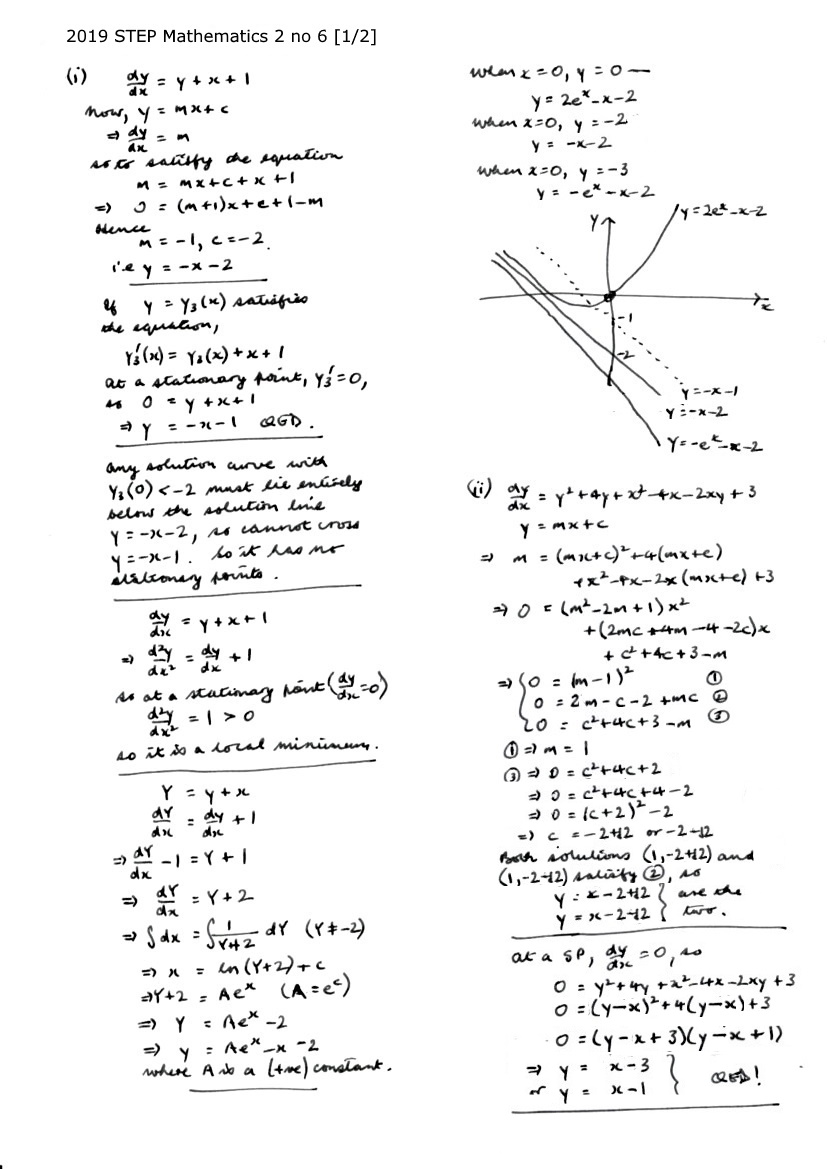 2019 STEP Mathematics 2 no 6 [1/2]
(i) dy/dx = y + x + 1
Now, y = mx + c
⇒ dy/dx = m
so to satisfy the equation
m = mx + c + x + 1
⇒ 0 = (m+1)x + c + 1 - m
Hence
m = -1, c = -2.
i.e y = -x - 2
If y = Y₃(x) satisfies
the equation,
Y₃'(x) = Y₃(x) + x + 1
at a stationary point, Y₃' = 0,
so 0 = y + x + 1
⇒ y = -x - 1 QED.
any solution curve with
Y₃(0) < -2 must lie entirely
below the solution line
y = -x - 2, so cannot cross
y = -x - 1. So it has no
stationary points.
dy/dx = y + x + 1
⇒ d²y/dx² = dy/dx + 1
so at a stationary point (dy/dx = 0)
d²y/dx² = 1 > 0
so it is a local minimum.
Y = y + x
dY/dx = dy/dx + 1
⇒ dY/dx - 1 = Y + 1
⇒ dY/dx = Y + 2
⇒ ∫dx = ∫1/(Y+2) dY (Y ≠ -2)
⇒ x = ln(Y+2) + c
⇒ Y+2 = Aeˣ (A = eᶜ)
⇒ Y = Aeˣ - 2
⇒ y = Aeˣ - x - 2
where A is a (+ve) constant.
when x = 0, y = 0 —
y = 2eˣ - x - 2
when x = 0, y = -2
y = -x - 2
when x = 0, y = -3
y = -eˣ - x - 2
y = 2eˣ - x - 2
Y
x
-1
-2
y = -x - 1
y = -x - 2
y = -eˣ - x - 2
(ii) dy/dx = y² + 4y + x² - 4x - 2xy + 3
y = mx + c
⇒ m = (mx+c)² + 4(mx+c)
+ x² - 4x - 2x(mx+c) + 3
⇒ 0 = (m² - 2m + 1)x²
+ (2mc + 4m - 4 - 2c)x
+ c² + 4c + 3 - m
⇒ { 0 = (m-1)² ①
0 = 2m - c - 2 + mc ②
0 = c² + 4c + 3 - m ③
① ⇒ m = 1
③ ⇒ 0 = c² + 4c + 2
⇒ 0 = c² + 4c + 4 - 2
⇒ 0 = (c+2)² - 2
⇒ c = -2+√2 or -2-√2
Both solutions (1, -2+√2) and
(1, -2-√2) satisfy ②, so
y = x - 2+√2 } are the
y = x - 2-√2 } two.
at a SP, dy/dx = 0, so
0 = y² + 4y + x² - 4x - 2xy + 3
0 = (y-x)² + 4(y-x) + 3
0 = (y - x + 3)(y - x + 1)
⇒ y = x - 3 }
or y = x - 1 } QED!